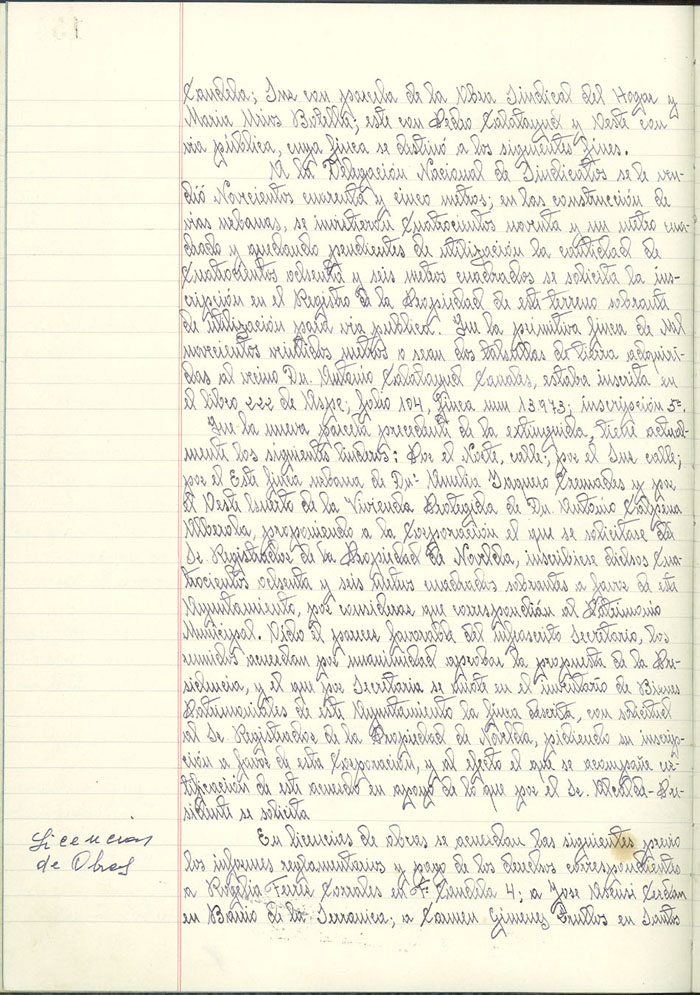 Candela; Sur con parcela de la Obra Sindical del Hogar y
Maria Miras Botella; este con Pedro Calatayud y Oeste con
via pública, cuya finca se destinó a los siguientes fines.
A la Delegación Nacional de Sindicatos se le ven-
dió Novecientos cuarenta y cinco metros; en las construcción de
vias urbanas, se invirtieron Cuatrocientos noventa y un metro cua-
drado y quedando pendientes de utilización la cantidad de
Cuatrocientos ochenta y seis metros cuadrados se solicita la ins-
cripción en el Registro de la Propiedad de este terreno sobrante
de utilización para via publica. Que la primitiva finca de Mil
novecientos veintidos metros o sean dos tahullas de tierra adquiri-
das al vecino Dn. Antonio Calatayud Canales, estaba inscrita en
el libro 222 de Aspe, folio 104, finca num 13973, inscripción 5ª.
Que la nueva parcela procedente de la extinguida, tiene actual-
mente los siguientes linderos: Por el Norte, calle; por el Sur calle;
por el Este finca urbana de Dª Amelia Cremades y por
el Oeste huerto de la Vivienda Protegida de Dn. Antonio
proponiendo a la Corporación el que se solicitase del
Sr. Registrador de la Propiedad de Novelda, inscribiese dichos Cua-
trocientos ochenta y seis metros cuadrados sobrantes a favor de este
Ayuntamiento, por considerar que correspondian al Patrimonio
Municipal. Vido el parecer favorable del infrascrito Secretario, los
reunidos acuerdan por unanimidad aprobar la propuesta de la Pre-
sidencia, y el que por Secretaria se anote en el inventario de Bienes
Patrimoniales de este Ayuntamiento la finca descrita, con solicitud
al Sr Registrador de la Propiedad de Novelda, pidiendo su inscrip-
ción a favor de esta Corporación, y al efecto el que se acompañe cer-
tificación de este acuerdo en apoyo de lo que por el Sr. Alcalde-Pre-
sidente se solicita
Licencias
de Obras
En licencias de obras se acuerdan las siguientes previo
los informes reglamentarios y pago de los derechos correspondiente
a Rogelia Ferriz Corrales en Fº Candela 4; a Jose Asensi Cerdan
en Barrio de la Serranica; a Carmen Gimenez Brullos en Santo